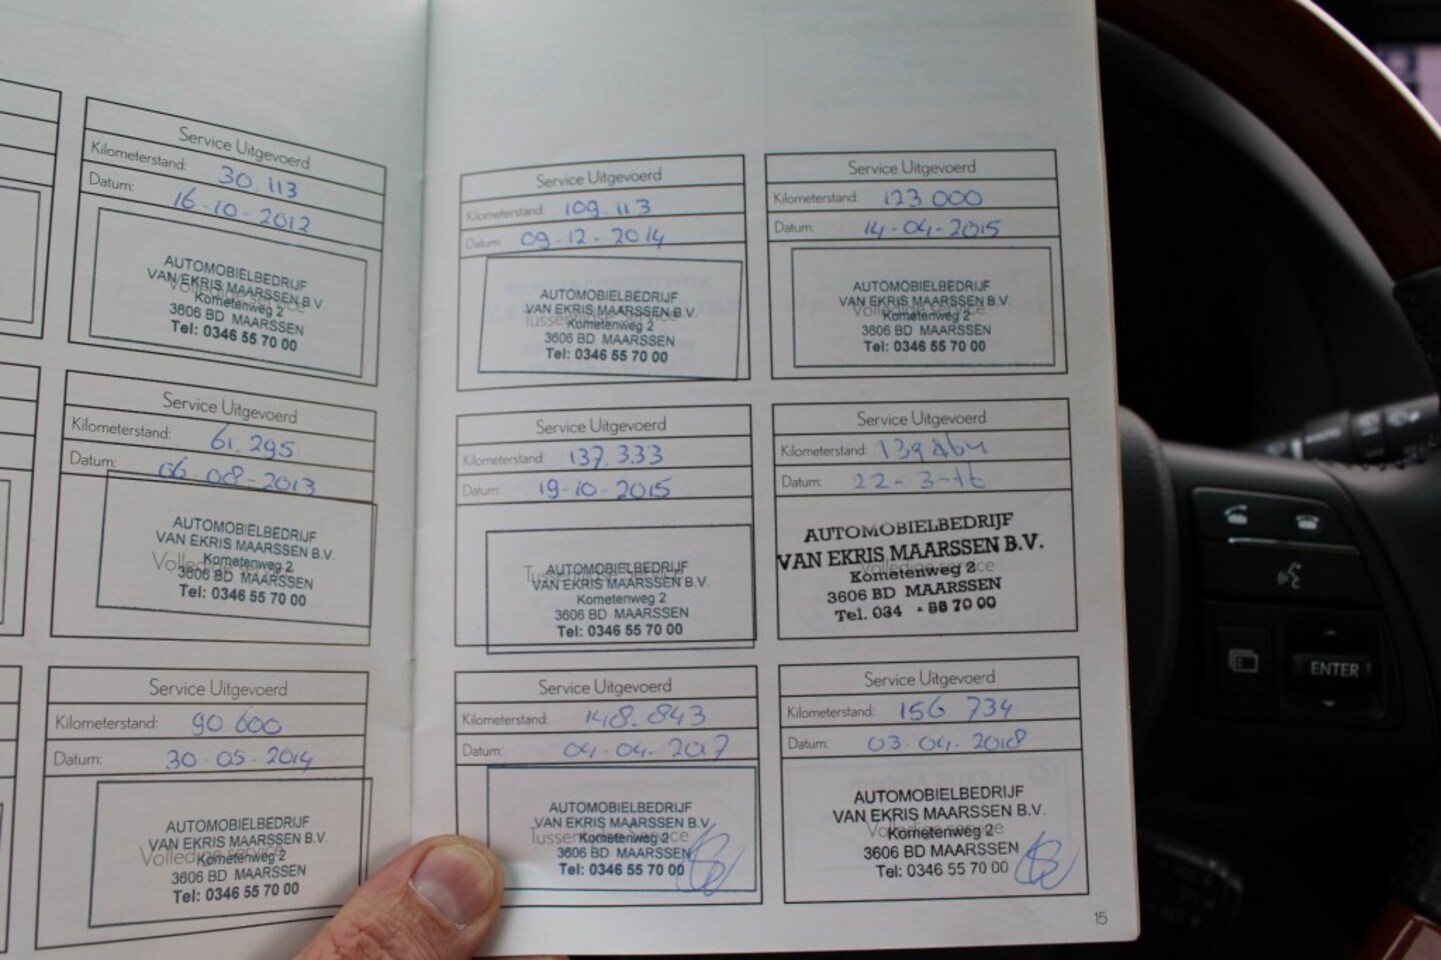 Service Uitgevoerd
Kilometerstand: 30.113
Datum: 16-10-2012
Volledige service
AUTOMOBIELBEDRIJF
VAN EKRIS MAARSSEN B.V.
Kometenweg 2
3606 BD MAARSSEN
Tel: 0346 55 70 00
Service Uitgevoerd
Kilometerstand: 61.295
Datum: 06-08-2013
Volledige service
AUTOMOBIELBEDRIJF
VAN EKRIS MAARSSEN B.V.
Kometenweg 2
3606 BD MAARSSEN
Tel: 0346 55 70 00
Service Uitgevoerd
Kilometerstand: 90.600
Datum: 30-05-2014
Volledige service
AUTOMOBIELBEDRIJF
VAN EKRIS MAARSSEN B.V.
Kometenweg 2
3606 BD MAARSSEN
Tel: 0346 55 70 00
Service Uitgevoerd
Kilometerstand: 109.113
Datum: 09-12-2014
Tussentijdse Service
AUTOMOBIELBEDRIJF
VAN EKRIS MAARSSEN B.V.
Kometenweg 2
3606 BD MAARSSEN
Tel: 0346 55 70 00
Service Uitgevoerd
Kilometerstand: 123.000
Datum: 14-04-2015
Volledige service
AUTOMOBIELBEDRIJF
VAN EKRIS MAARSSEN B.V.
Kometenweg 2
3606 BD MAARSSEN
Tel: 0346 55 70 00
Service Uitgevoerd
Kilometerstand: 137.333
Datum: 19-10-2015
Tussentijdse Service
AUTOMOBIELBEDRIJF
VAN EKRIS MAARSSEN B.V.
Kometenweg 2
3606 BD MAARSSEN
Tel: 0346 55 70 00
Service Uitgevoerd
Kilometerstand:
Datum: 22-3-16
Volledige service
AUTOMOBIELBEDRIJF
VAN EKRIS MAARSSEN B.V.
Kometenweg 2
3606 BD MAARSSEN
Tel. 034 55 70 00
Service Uitgevoerd
Kilometerstand: 148.843
Datum: 04-04-2017
Tussentijdse Service
AUTOMOBIELBEDRIJF
VAN EKRIS MAARSSEN B.V.
Kometenweg 2
3606 BD MAARSSEN
Tel: 0346 55 70 00
Service Uitgevoerd
Kilometerstand: 156.734
Datum: 03-04-2018
Volledige service
AUTOMOBIELBEDRIJF
VAN EKRIS MAARSSEN B.V.
Kometenweg 2
3606 BD MAARSSEN
Tel: 0346 55 70 00
15
ENTER